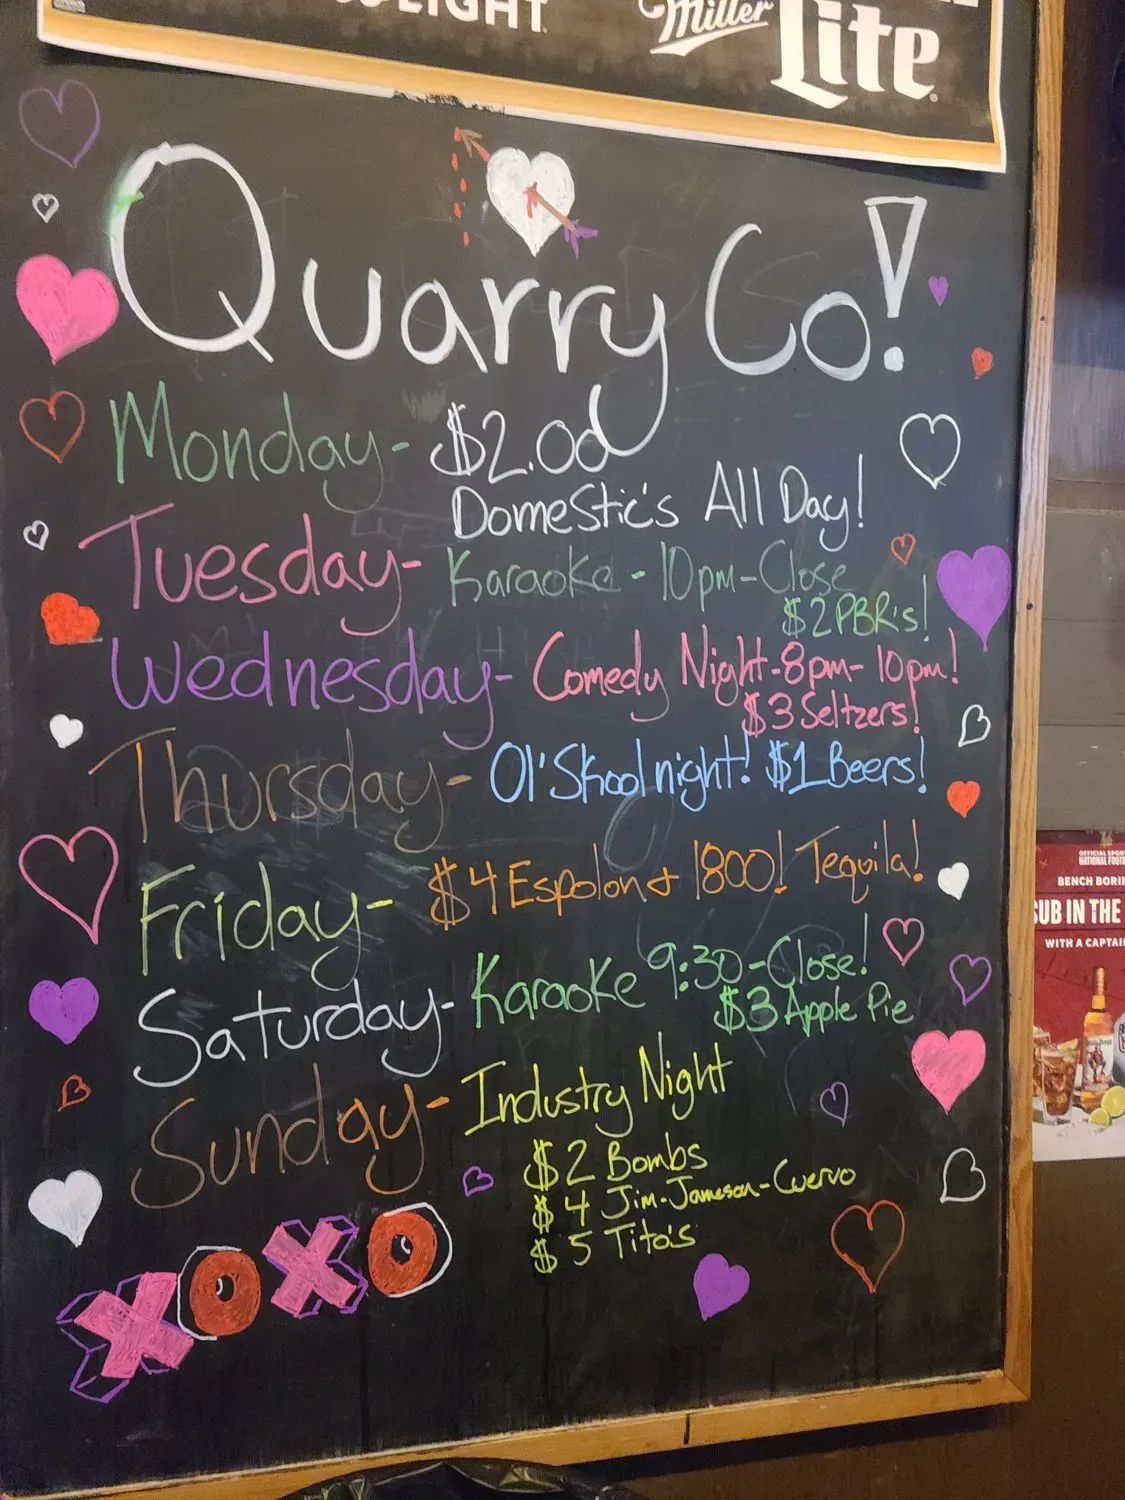 LIGHT
Miller
Lite
Quarry Co!
Monday- $2.00
Domestic's All Day!
Tuesday- Karaoke - 10pm-Close
$2 PBR's!
Wednesday- Comedy Night-8pm-10pm!
$3 Seltzers!
Thursday- Ol' Skool night! $1 Beers!
Friday- $4 Espolon & 1800! Tequila!
Saturday- Karaoke 9:30-Close!
$3 Apple Pie
Sunday- Industry Night
$2 Bombs
$4 Jim-Jameson-Cuervo
$5 Tito's
XOXO
BENCH
SUB IN THE
WITH A